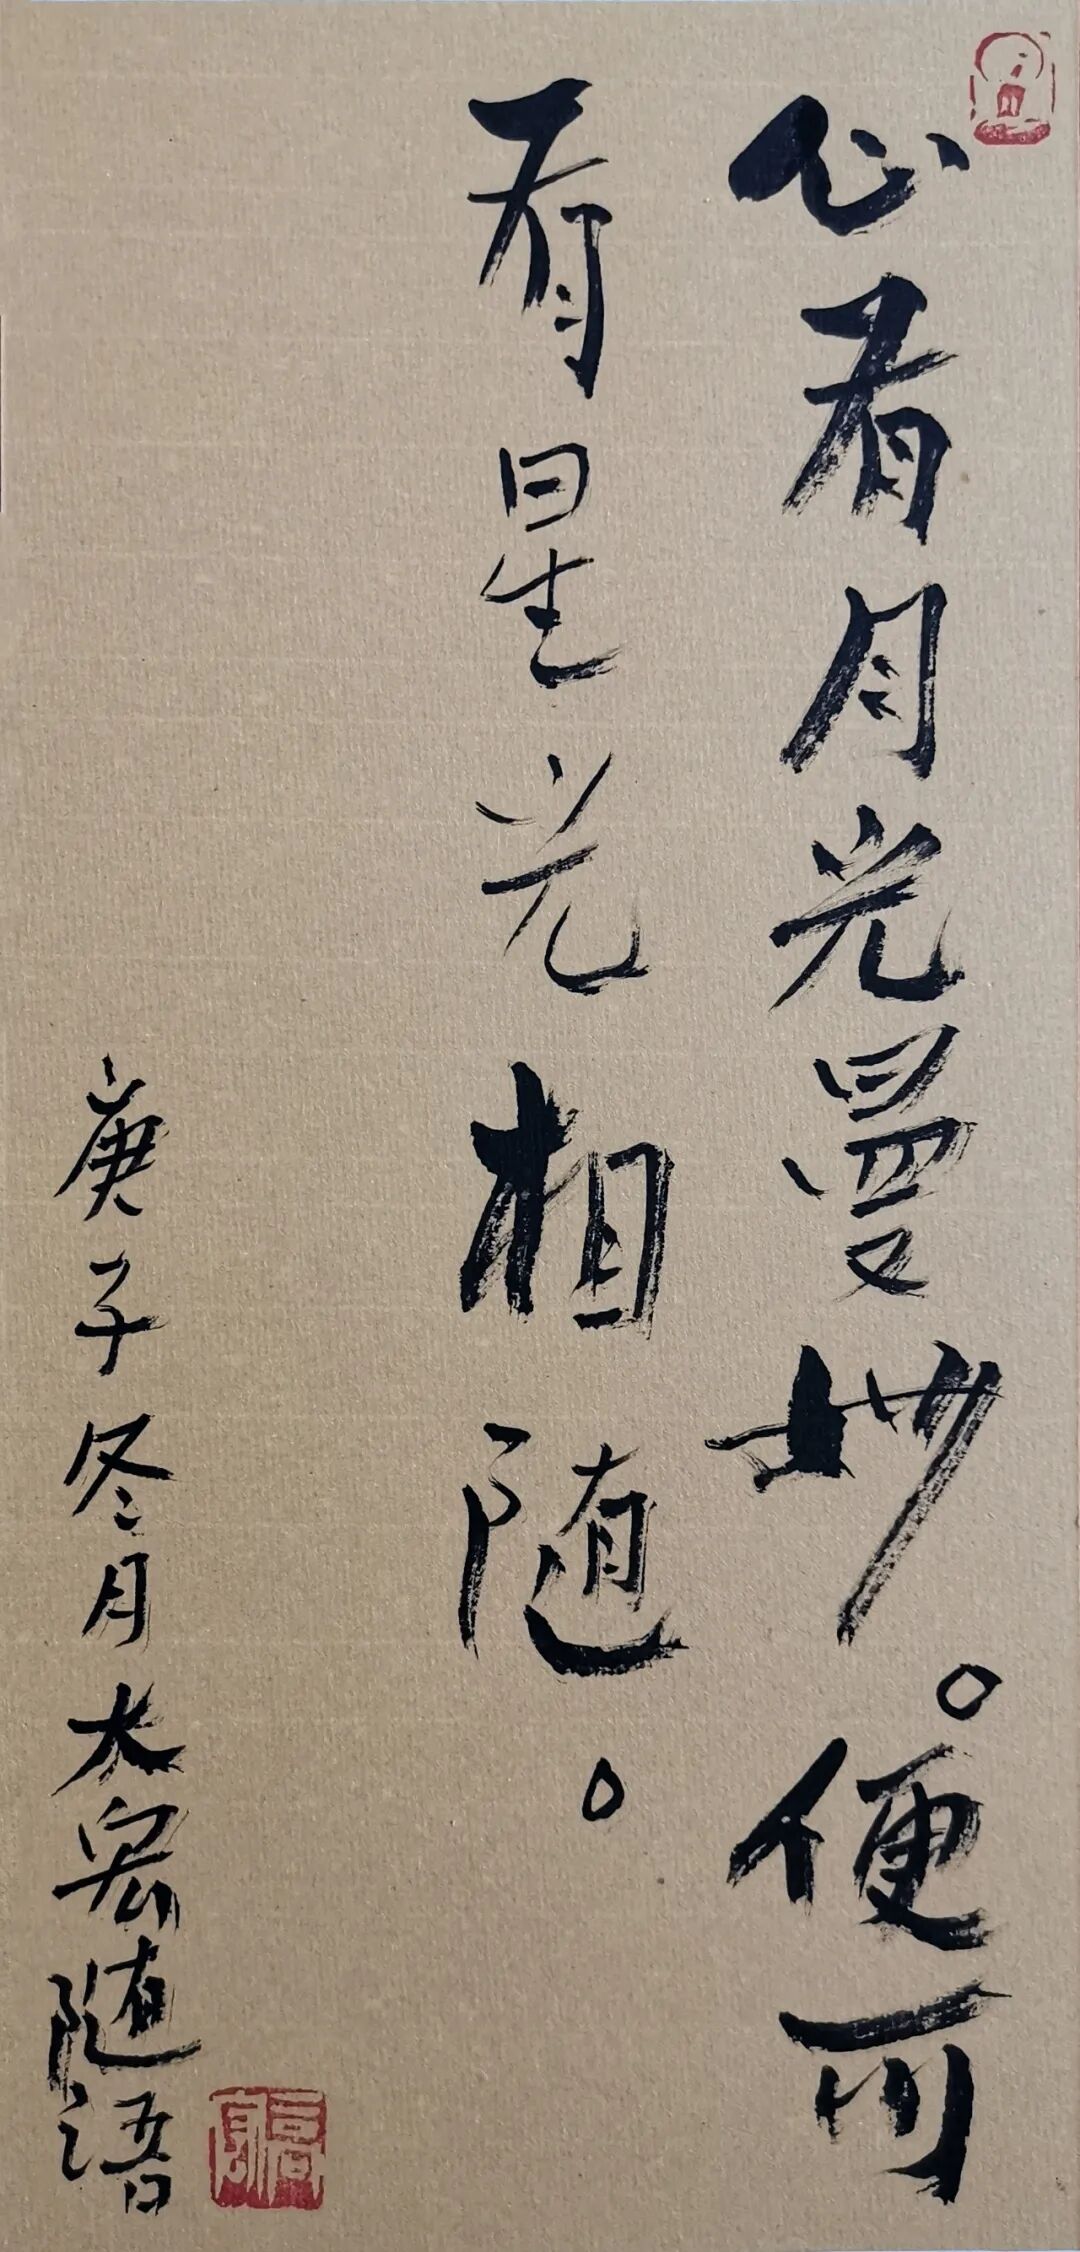 心有月光曼妙。便可
有星光相随。
庚子冬月大宏随语